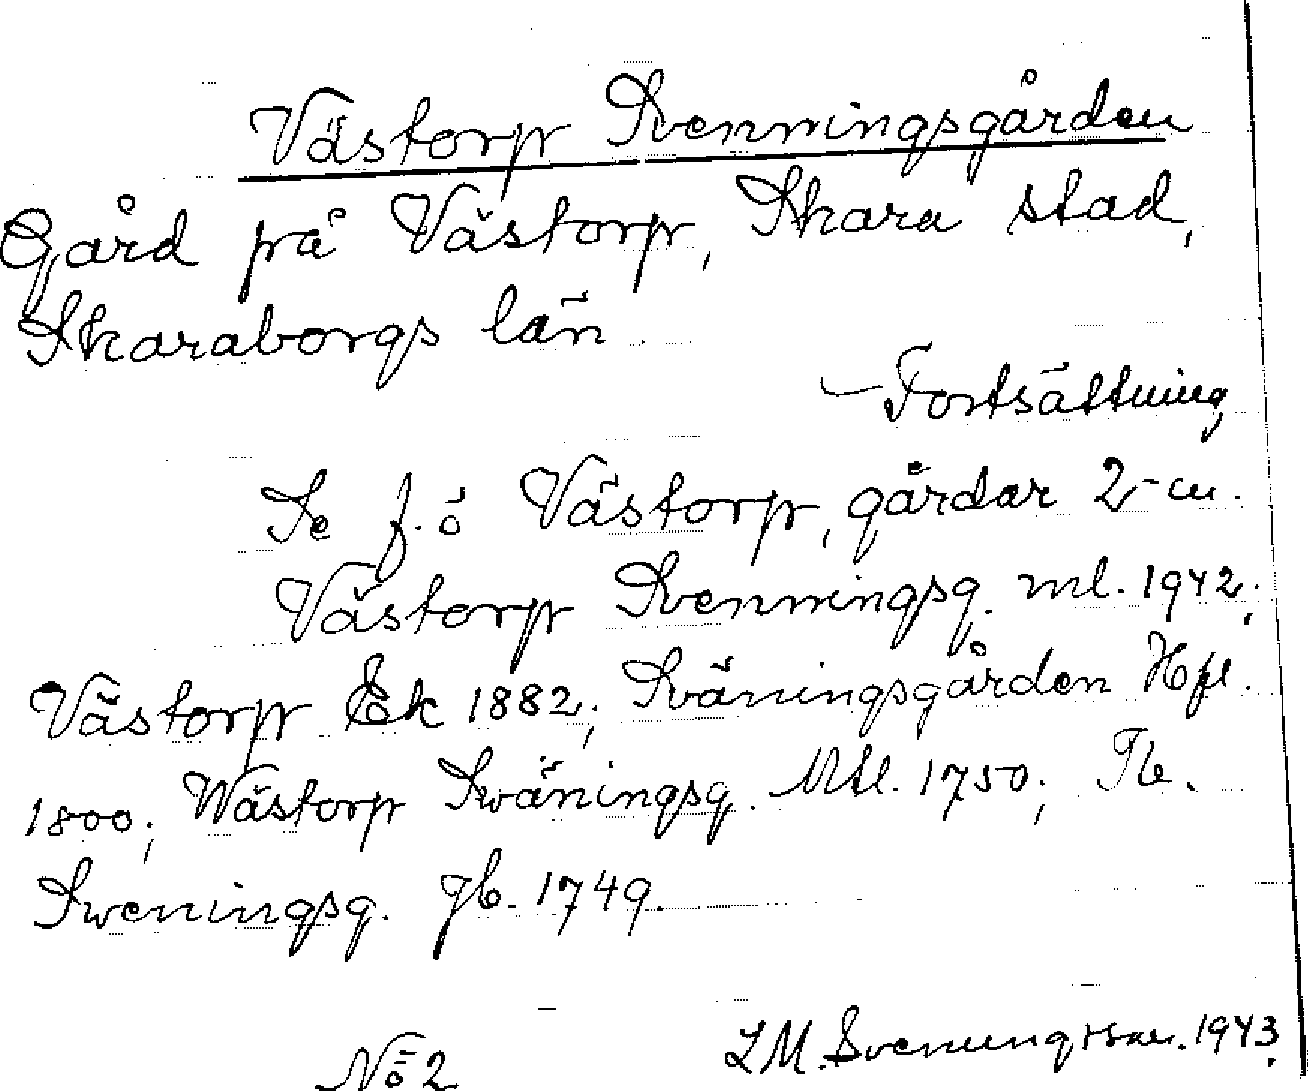 Västorp Svenningsgården
Gård på Västorp, Skara stad,
Skaraborgs län
Fortsättning
Se f. ö Västorp, gårdar 2
Västorp Svenningsg. ml. 1942;
Västorp Ek 1882; Sväningsgården Hfl.
1800; Wästorp Swäningsg. Mtl. 1750; Ib.
Sweningsg. Jb. 1749.
L M. Svenungsson. 1943.
No 2